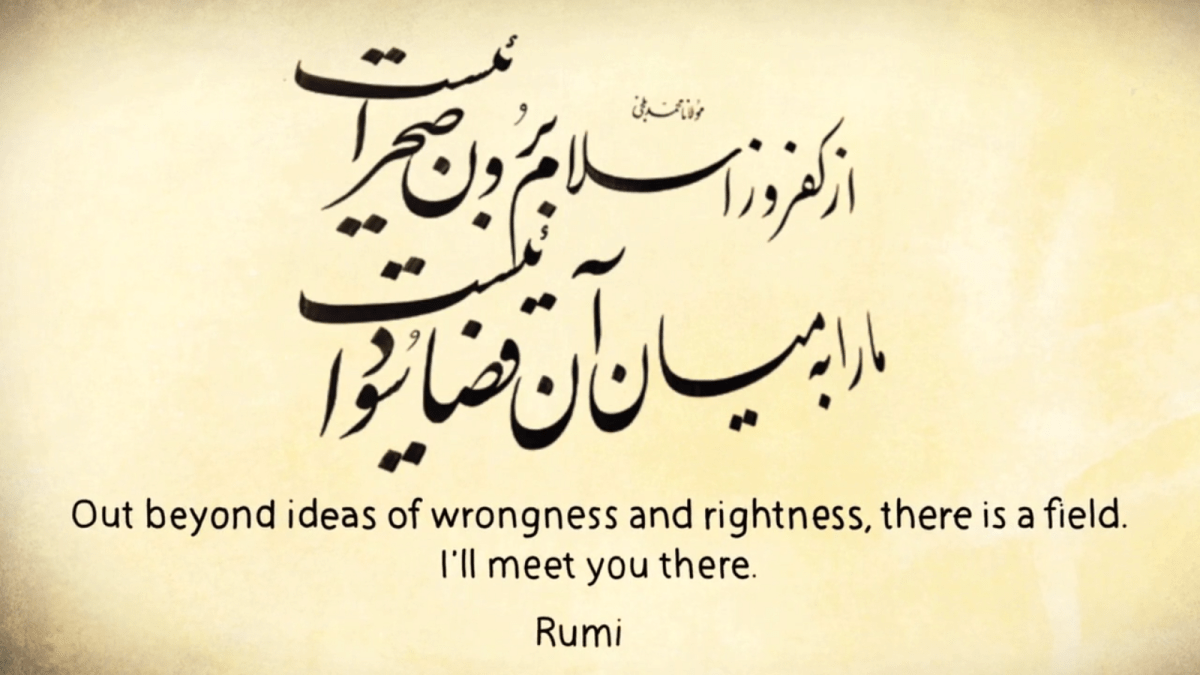 مولانا محمد بلخی
از کفر و ز اسلام برون صحرائیست
ما را به میان آن فضا سودائیست
Out beyond ideas of wrongness and rightness, there is a field.
I'll meet you there.
Rumi